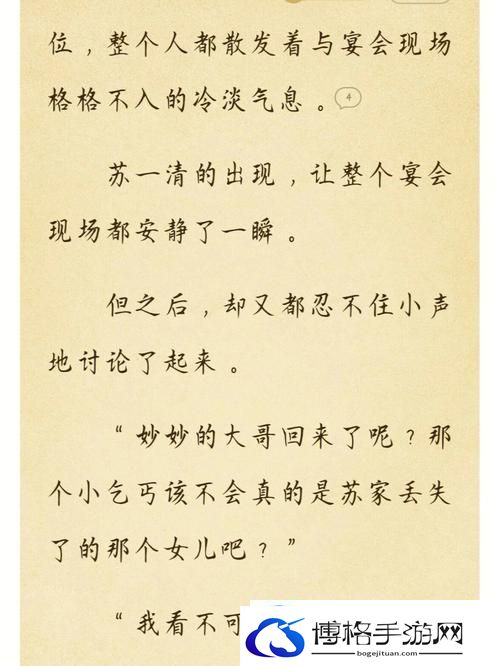 位，整个人都散发着与宴会现场
格格不入的冷淡气息。 4
苏一清的出现，让整个宴会
现场都安静了一瞬。
但之后，却又都忍不住小声
地讨论了起来。
“妙妙的大哥回来了呢？那
个小乞丐该不会真的是苏家丢失
了的那个女儿吧？”
“我看不可
博格手游网
bogejituan.com